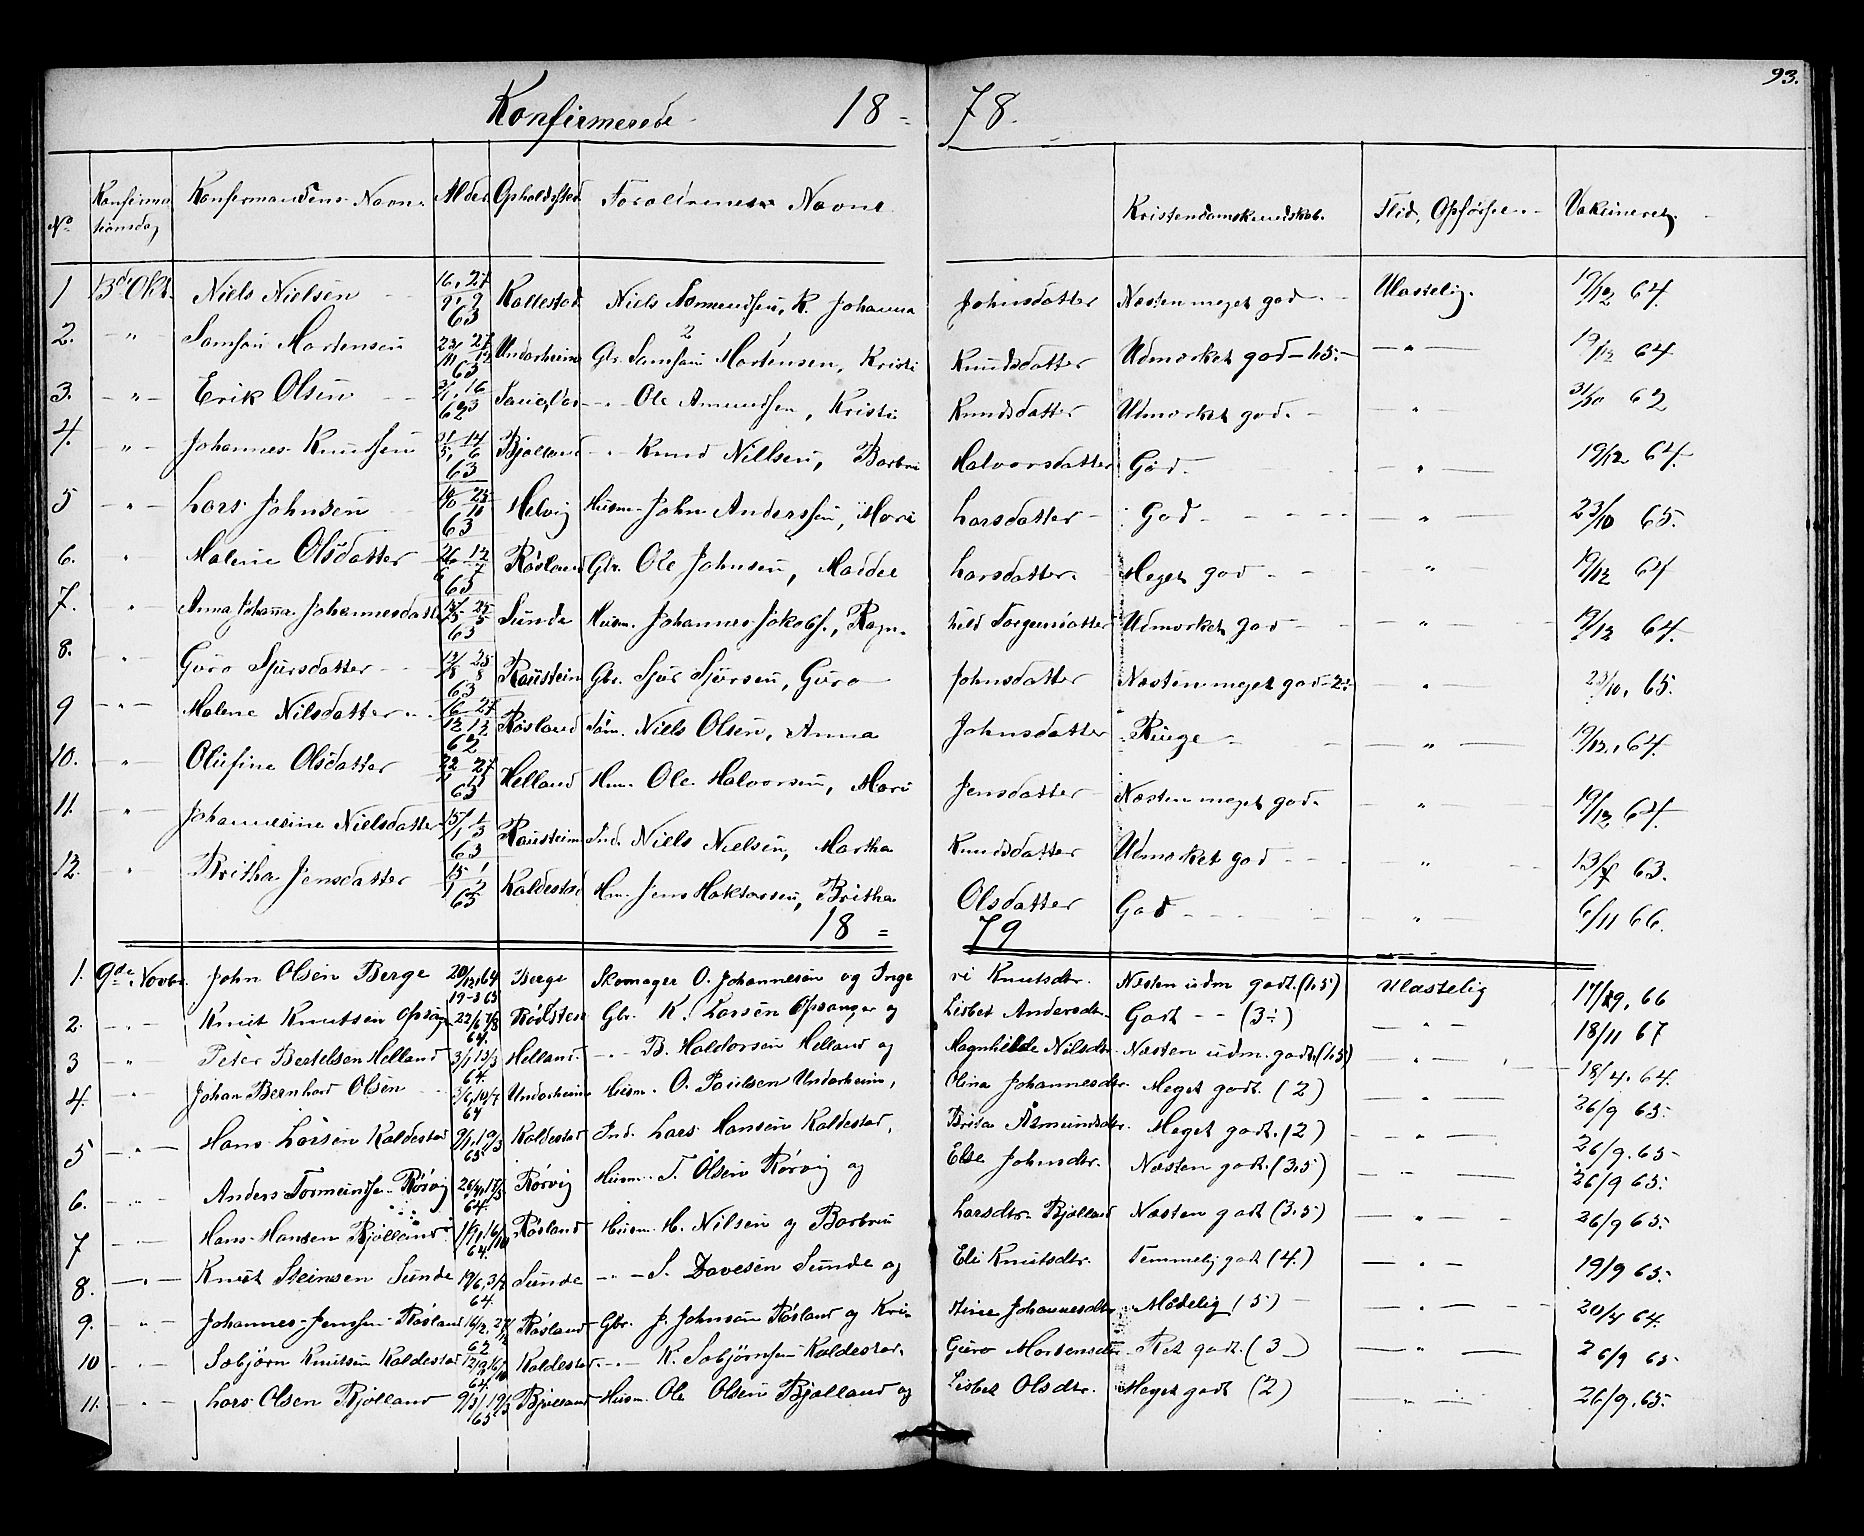 93.
Konfirmerede 18 - 78.
No Konfirmationsdag Konfirmandens Navn. Alder Opholdssted Forældrenes Navne Kristendomskundskab. Flid, Opførsel Vakcineret
1 13de Okt. Niels Nielsen 63 Kallestad Niels Asmundsen, K. Johanna Johnsdatter Næsten meget god Ulastelig. 19/12 64.
2. " Samson Mortensen 63 Undarheim Gbr. Samson Mortensen, Kristi Knudsdatter Udmærket god - 1.5 - " - 19/12 64
3. " Erik Olsen 62 - " Ole Amundsen, Kristi Knudsdatter Udmærket god. " 3/10 62
4. " Johannes Knudsen 63 Bjølland - " Knud Nillsen, Barbru Halvorsdatter God. " 19/12 64.
5 " Lars Johnsen 63 Helvig Husm. John Anderssen, Mari Larsdatter God " 23/10 65.
6. " Malene Olsdatter 63 Røsland Gbr. Ole Johnsen, Madde Larsdatter. Meget god " 19/12 64
7. " Anna Johanna Johannesdatt 63 Sunde Husm. Johannes Jakobs., Ragn- hild Torgeirsdatter Udmærket god " 19/12 64.
8. " Guro Sjursdatter 63 Raustein Gbr. Sjur Sjursen, Guro Johnsdatter Næsten meget god - 2 " 23/10, 65.
9 " Malene Nilsdatter 62 Røsland Niels Olsen, Anna Johnsdatter Ringe " 19/12, 64.
10. " Olufine Olsdatter 63 Helland Hm. Ole Halvorsen, Mari Jensdatter Næsten meget god. " 19/12 64.
11. " Johannesine Nielsdatter 63 Raustein Ind. Niels Nielsen, Martha Knudsdatter Udmærket god " 13/7 63.
12. " Britha Jensdatter 63 Kaldestad Hm. Jens Haktorsen, Britha Olsdatter God " 6/11 66.
18 = 79
1. 9de Novbr. John Olsen Berge 20/12 64 Berge Skomager O. Johannesen og Inge ri Knutsdtr. Næsten udm godt. (1,5) Ulastelig 66
2. " Knut Knutsen Opsang 64. Rødsten Gbr. K. Larsen Opsanger og Lisbet Andersdtr. Godt - - (3÷) " 18/11 67
3 " Peter Bertelsen Helland 64. Helland - " B. Haldorsen Helland og Magnhilde Nilsdtr. Næsten udm. godt (1,5) " 18/4. 64.
4. " Johan Bernhard Olsen 64 Undarheim Husm. O. Paulsen Undarheim, Olina Johannesdtr. Meget godt. (2) " 26/9 65.
5 " Hans Larsen Kaldestad 65 Kaldestad Ind. Lars Hansen Kaldestad, Brita Åsmundsdtr. Meget godt. (2) " 26/9. 65
6. " Anders Tormundsen Rørvig 64. Rørvig Husm. T. Olsen Rørvig og Else Johnsdtr. Næsten godt. (3,5) " 26/9 65.
7 " Hans Hansen Bjølland 64. Røsland Husm. H. Nilsen og Barbru Larsdtr. Bjølland Næsten godt (3,5) " 26/9 65.
8. " Knut Steinsen Sunde 64. Sunde - " S. Davesen Sunde og Eli Knutsdtr. Temmelig godt (4.) " 19/9 65.
9. " Johannes Jensen Røsland 62 Røsland Gbr. J. Johnsen Røsland og Kri- stine Johannesdtr. Mådelig (5) " 20/4 64.
10 " Sæbjørn Knutsen Kaldestad 64 Kaldestad. - " K. Sæbjørnsen Kaldestad. Guro Mortensdtr. Ret godt. (3) " 26/9 65
11. " Lars Olsen Bjølland 65 Bjølland Husm. Ole Olsen Bjølland og Lisbet Olsdtr. Meget godt (2) " 26/9. 65.